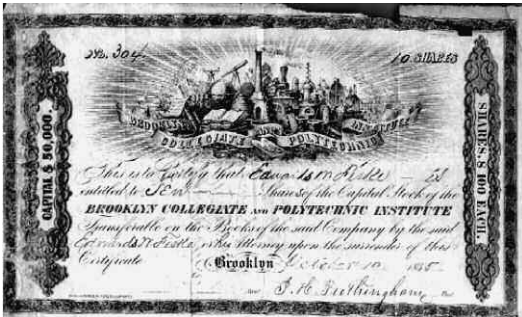 No. 304.
10 SHARES
BROOKLYN COLLEGIATE AND POLYTECHNIC INSTITUTE
CAPITAL $ 50,000.
SHARES $ 100 EACH.
This is to Certify that Edward M Fiske is
entitled to TEN Shares of the Capital Stock of the
BROOKLYN COLLEGIATE AND POLYTECHNIC INSTITUTE
Transferable on the Books of the said Company by the said
Edward M Fiske or his Attorney upon the surrender of this
Certificate
Brooklyn October 185
J. H. Frothingham Pres